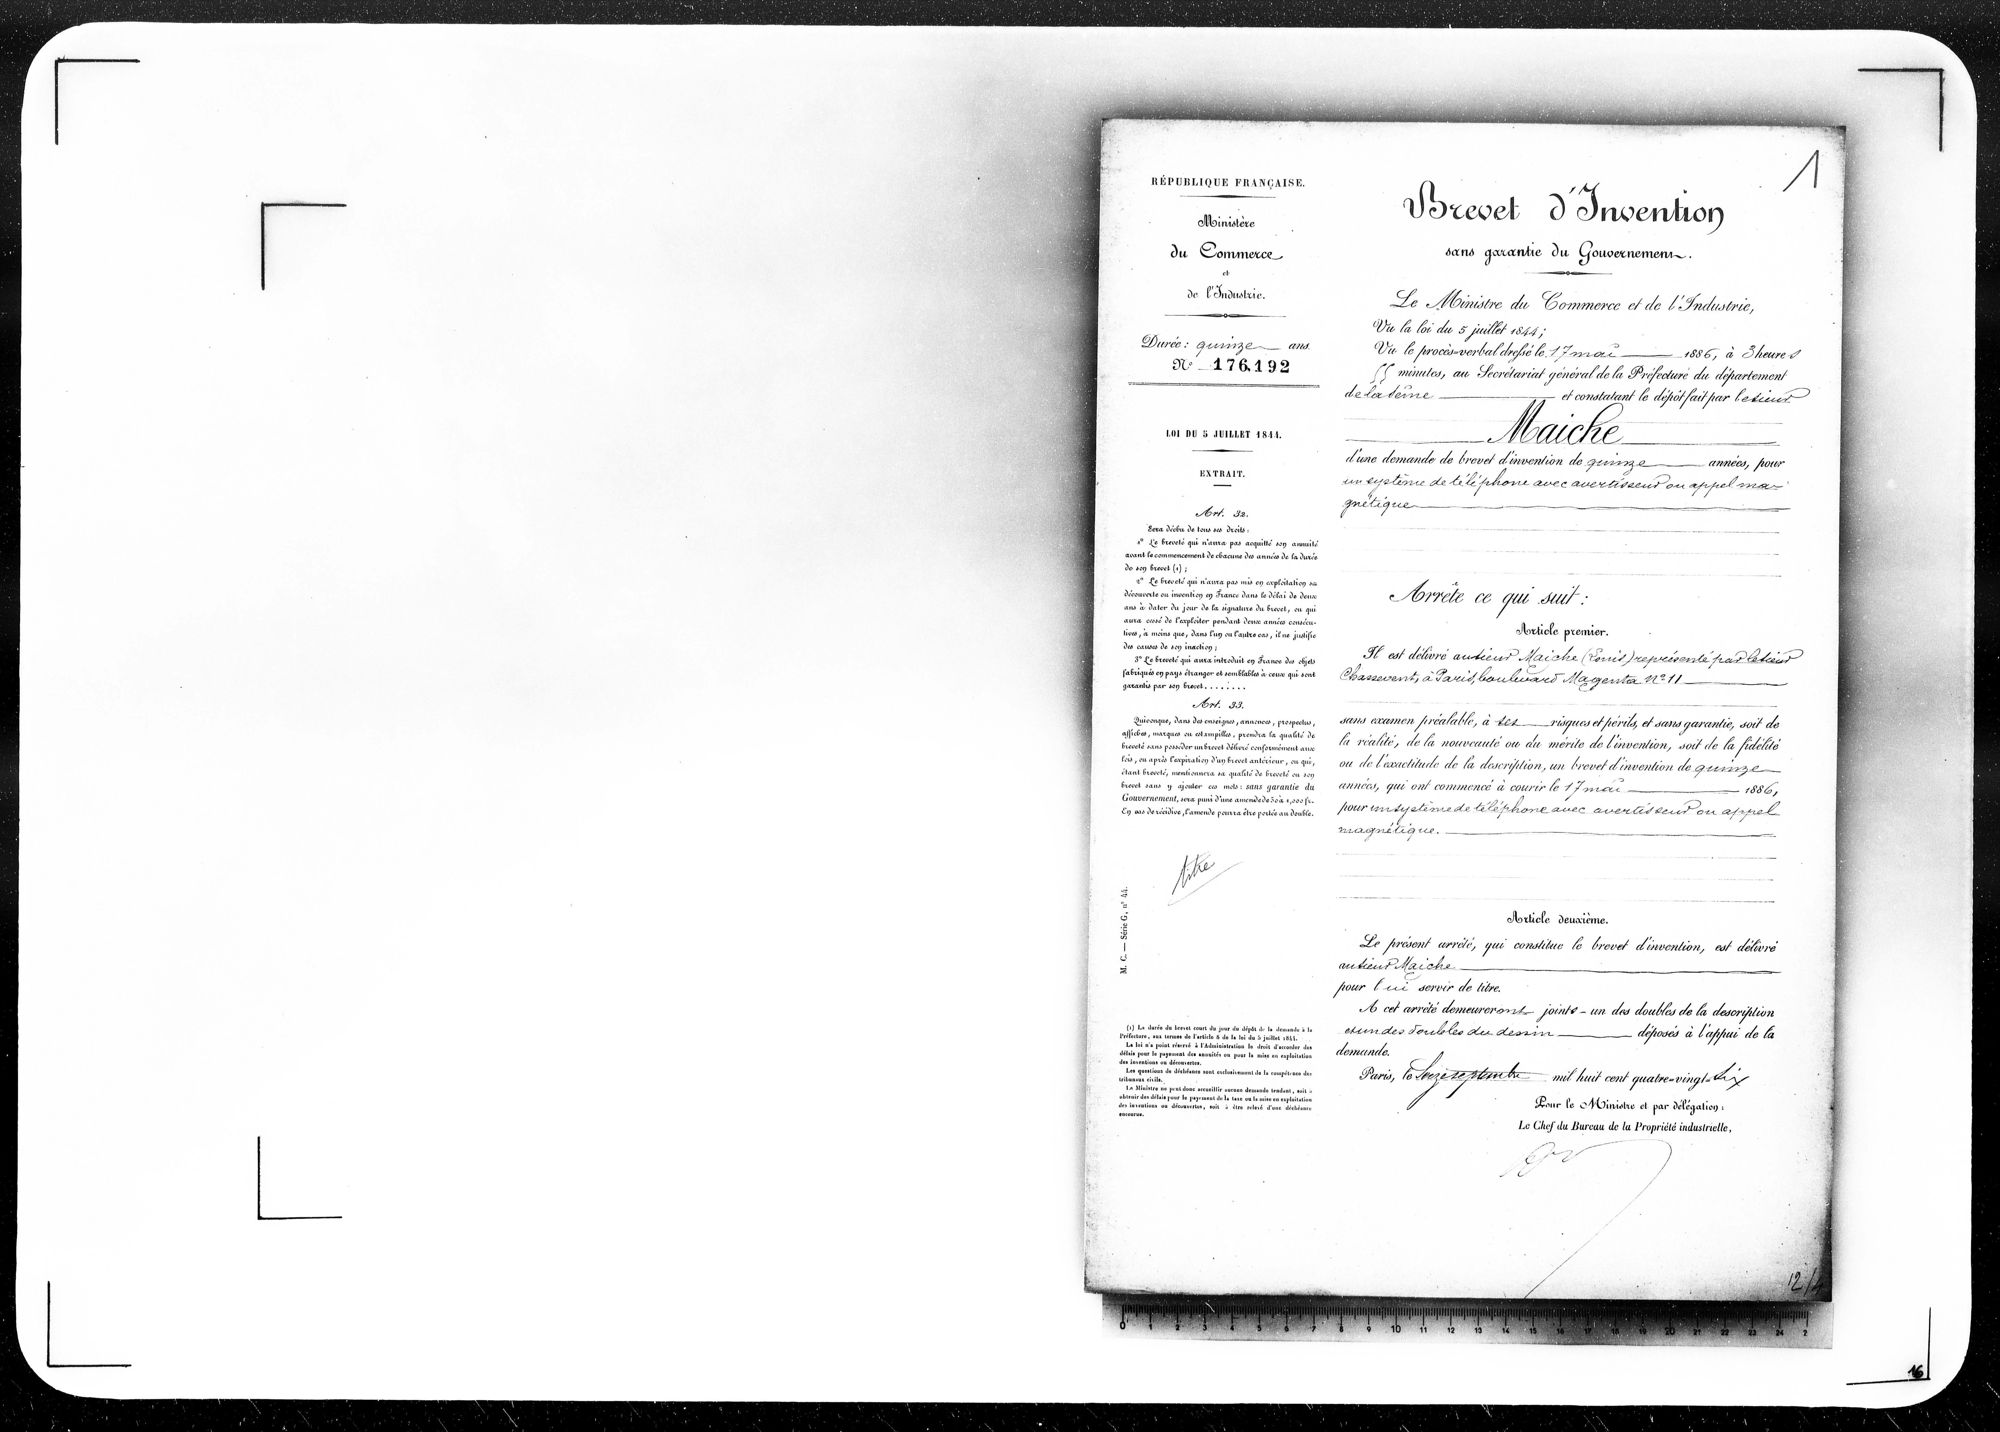 RÉPUBLIQUE FRANÇAISE.
Ministère
du Commerce
et
de l'Industrie.
Durée : quinze ans.
N° 176.192
LOI DU 5 JUILLET 1844.
EXTRAIT.
Art. 32.
Sera déchu de tous ses droits :
1° Le breveté qui n'aura pas acquitté son annuité
avant le commencement de chacune des années de la durée
de son brevet (1) ;
2° Le breveté qui n'aura pas mis en exploitation sa
découverte ou invention en France dans le délai de deux
ans à dater du jour de la signature du brevet, ou qui
aura cessé de l'exploiter pendant deux années consécu-
tives, à moins que, dans l'un ou l'autre cas, il ne justifie
des causes de son inaction ;
3° Le breveté qui aura introduit en France des objets
fabriqués en pays étranger et semblables à ceux qui sont
garantis par son brevet........
Art. 33.
Quiconque, dans des enseignes, annonces, prospectus,
affiches, marques ou estampilles, prendra la qualité de
breveté sans posséder un brevet délivré conformément aux
lois, ou après l'expiration d'un brevet antérieur, ou qui,
étant breveté, mentionnera sa qualité de breveté ou son
brevet sans y ajouter ces mots : sans garantie du
Gouvernement, sera puni d'une amende de 50 à 1,000 fr.
En cas de récidive, l'amende pourra être portée au double.
titre
M. C. — Série G, n° 44.
(1) La durée du brevet court du jour du dépôt de la demande à la
Préfecture, aux termes de l'article 8 de la loi du 5 juillet 1844.
La loi n'a point réservé à l'Administration le droit d'accorder des
délais pour le payement des annuités ou pour la mise en exploitation
des inventions ou découvertes.
Les questions de déchéance sont exclusivement de la compétence des
tribunaux civils.
Le Ministre ne peut donc accueillir aucune demande tendant, soit à
obtenir des délais pour le payement de la taxe ou la mise en exploitation
des inventions ou découvertes, soit à être relevé d'une déchéance
encourue.
1
Brevet d'Invention
sans garantie du Gouvernement.
Le Ministre du Commerce et de l'Industrie,
Vu la loi du 5 juillet 1844 ;
Vu le procès-verbal dressé le 17 mai 1886, à 3 heures
55 minutes, au Secrétariat général de la Préfecture du département
de la Seine et constatant le dépôt fait par le sieur
Maiche
d'une demande de brevet d'invention de quinze années, pour
un système de téléphone avec avertisseur ou appel ma-
gnétique
Arrête ce qui suit :
Article premier.
Il est délivré au sieur Maiche (Louis) représenté par le sieur
Chassevent, à Paris, boulevard Magenta n° 11
sans examen préalable, à ses risques et périls, et sans garantie, soit de
la réalité, de la nouveauté ou du mérite de l'invention, soit de la fidélité
ou de l'exactitude de la description, un brevet d'invention de quinze
années, qui ont commencé à courir le 17 mai 1886,
pour un système de téléphone avec avertisseur ou appel
magnétique.
Article deuxième.
Le présent arrêté, qui constitue le brevet d'invention, est délivré
au sieur Maiche
pour lui servir de titre.
A cet arrêté demeureront joints un des doubles de la description
et un des doubles du dessin déposés à l'appui de la
demande.
Paris, le Seize septembre mil huit cent quatre-vingt-six
Pour le Ministre et par délégation :
Le Chef du Bureau de la Propriété industrielle,
0 1 2 3 4 5 6 7 8 9 10 11 12 13 14 15 16 17 18 19 20 21 22 23 24 2
16